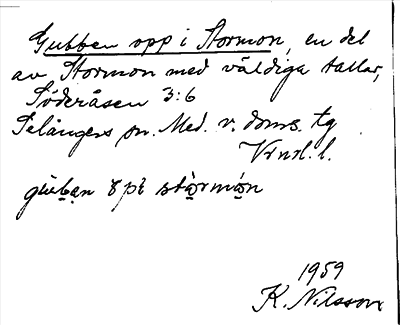 Gubben opp i Stormon, en del
av Stormon med väldiga tallar,
Söderåsen 3:6
Selångers sn. Med. v. doms. tg
Vrnl. l.
1959
K. Nilsson